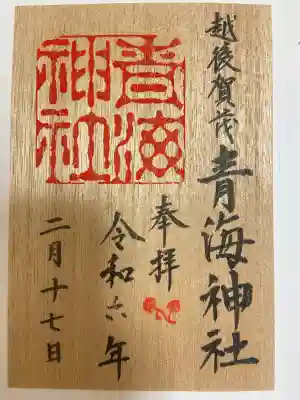 越後賀茂 青海神社
奉拝
令和六年
二月十七日
青海
神社